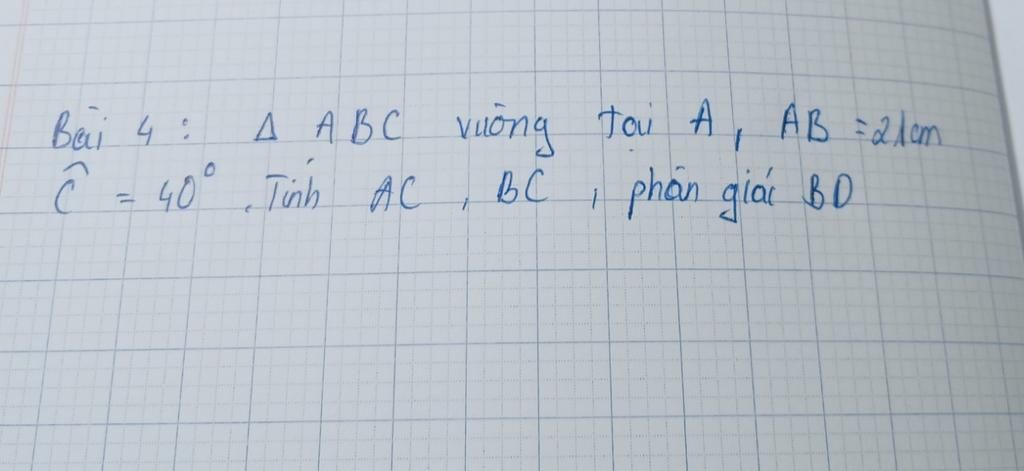 Bài 4 : Δ ABC vuông tại A, AB = 21cm
Ĉ = 40°. Tính AC, BC, phân giác BD